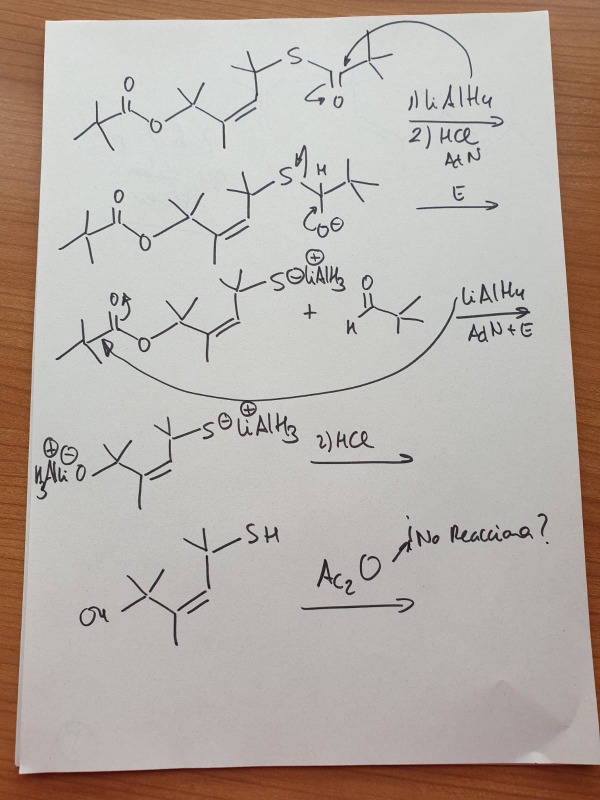 S
O
O
O
1) LiAlH4
2) HCl
AdN
S H
O
O
O⊖
E
S⊖ ⊕LiAlH3
O
O
+
O
H
LiAlH4
AdN + E
S⊖ ⊕LiAlH3
⊕ ⊖
H3AlLi O
2) HCl
SH
OH
Ac2O
¡No Reacciona?